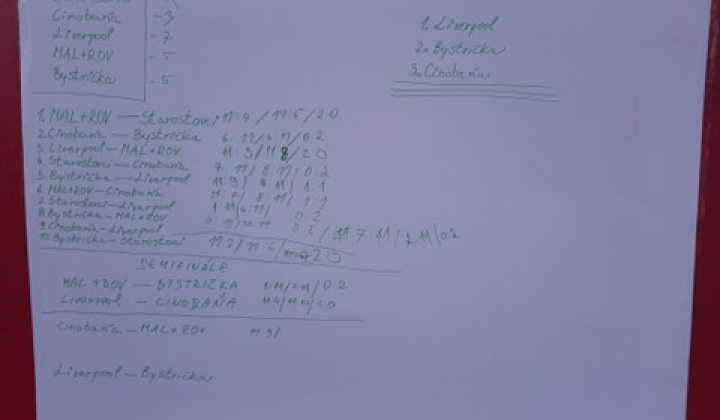 Cinobaňa - 3
Liverpool - 7
MAL+ROV - 5
Bystrička - 5
1. Liverpool
2. Bystrička
3. Cinobaňa
1. MAL+ROV — Starostovi 11:4 / 11:5 / 2:0
2. Cinobaňa — Bystrička 6:11 / 4:11 / 0:2
3. Liverpool — MAL+ROV 11:9 / 11:8 / 2:0
4. Starostovi — Cinobaňa 7:11 / 8:11 / 0:2
5. Bystrička — Liverpool 11:9 / 8:11 / 1:1
6. MAL+ROV — Cinobaňa 11:7 / 8:11 / 1:1
7. Starostovi — Liverpool 1:11 / 4:11 / 0:2
8. Bystrička — MAL+ROV 9:11 / 10:11 0:2
9. Cinobaňa — Liverpool 7:11 / 2:11 / 0:2
10. Bystrička — Starostovi 11:2 / 11:6 / 2:0
SEMIFINÁLE
MAL+ROV — BYSTRIČKA 0:2
LIVERPOOL — CINOBAŇA 2:0
Cinobaňa — MAL+ROV 11:9 /
Liverpool — Bystrička